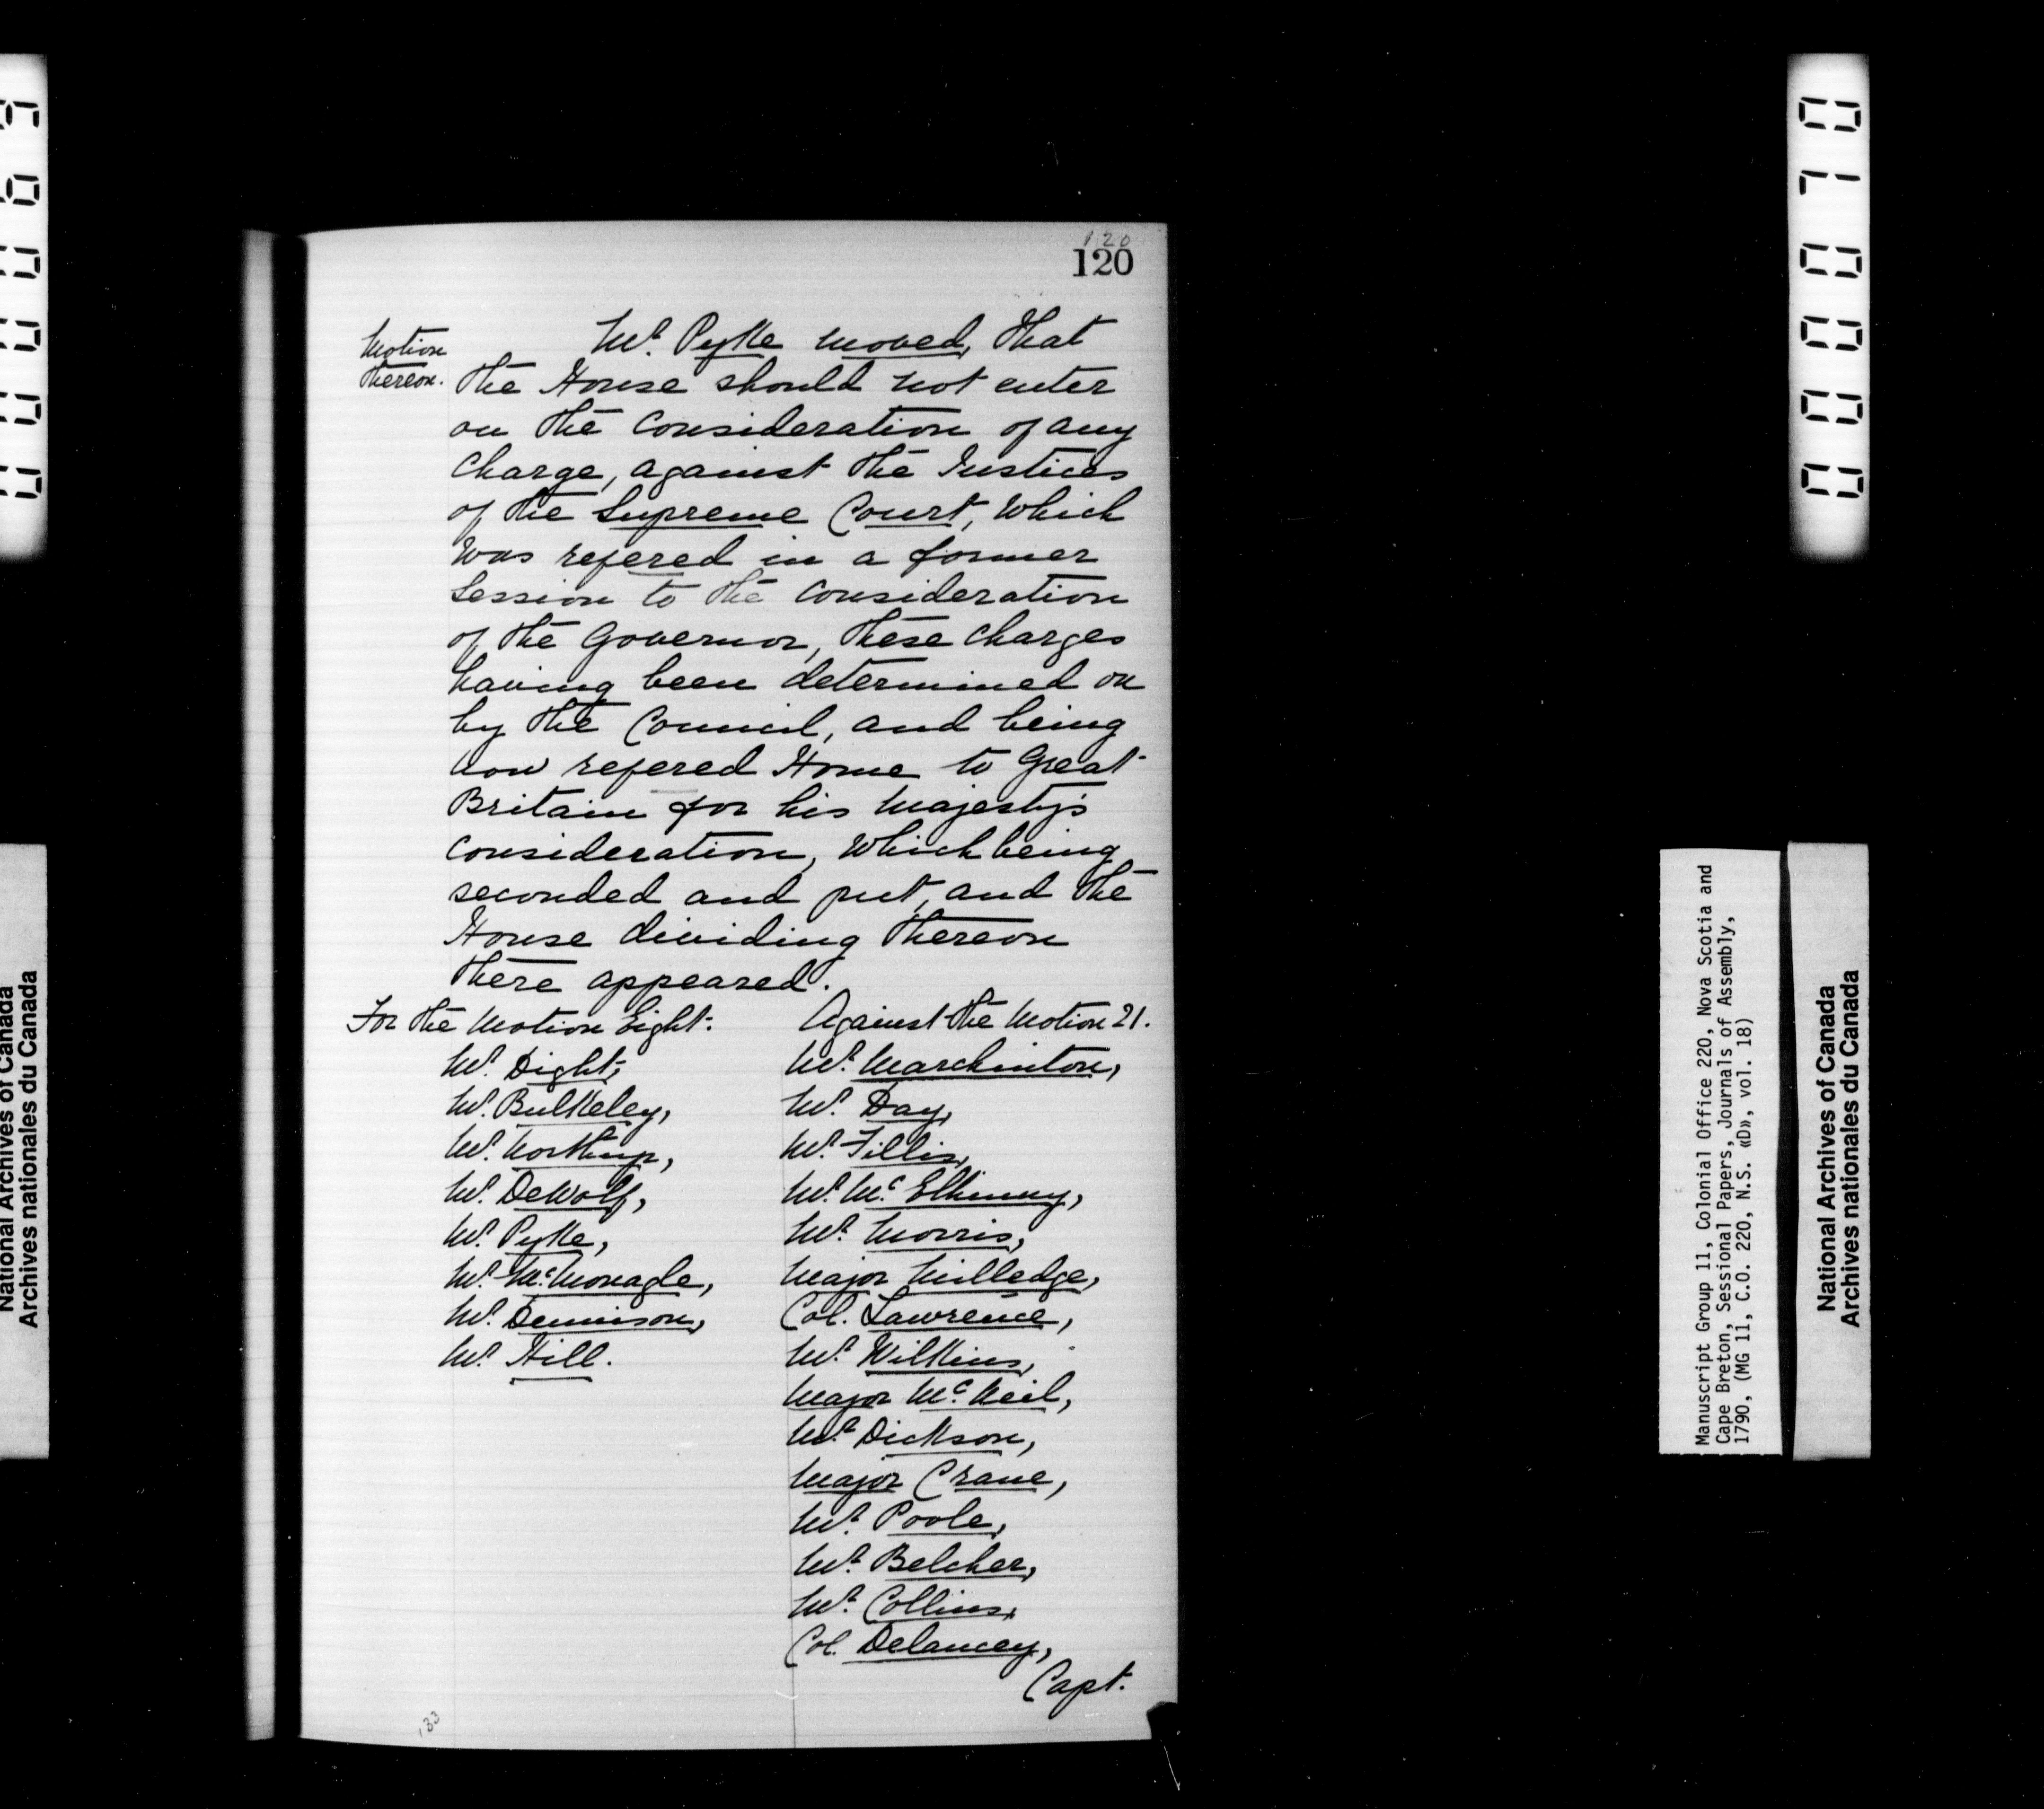 120
120
Motion
thereon.
Mr. Pyke moved, that
the House should not enter
on the Consideration of any
Charge, against the Justices
of the Supreme Court, which
was refered in a former
Session to the Consideration
of the Governor, these Charges
having been determined on
by the Council, and being
now refered Home to Great
Britain for his Majesty's
Consideration, which being
seconded and put, and the
House dividing thereon
there appeared.
For the Motion Eight:
Mr. Dight,
Mr. Bulkeley,
Mr. Northup,
Mr. DeWolf,
Mr. Pyke,
Mr. McMonagle,
Mr. Dennison,
Mr. Hill.
Against the Motion 21.
Mr. Marchinton,
Mr. Day,
Mr. Fillis,
Mr. Mc. Elhinny,
Mr. Morris,
Major Milledge,
Col. Lawrence,
Mr. Wilkins,
Major Mc. Neil,
Mr. Dickson,
Major Crane,
Mr. Poole,
Mr. Belcher,
Mr. Collins,
Col. Delancey,
Capt.
133
Manuscript Group 11, Colonial Office 220, Nova Scotia and
Cape Breton, Sessional Papers, Journals of Assembly,
1790, (MG 11, C.O. 220, N.S. «D», vol. 18)
National Archives of Canada
Archives nationales du Canada
National Archives of Canada
Archives nationales du Canada
000069
000070